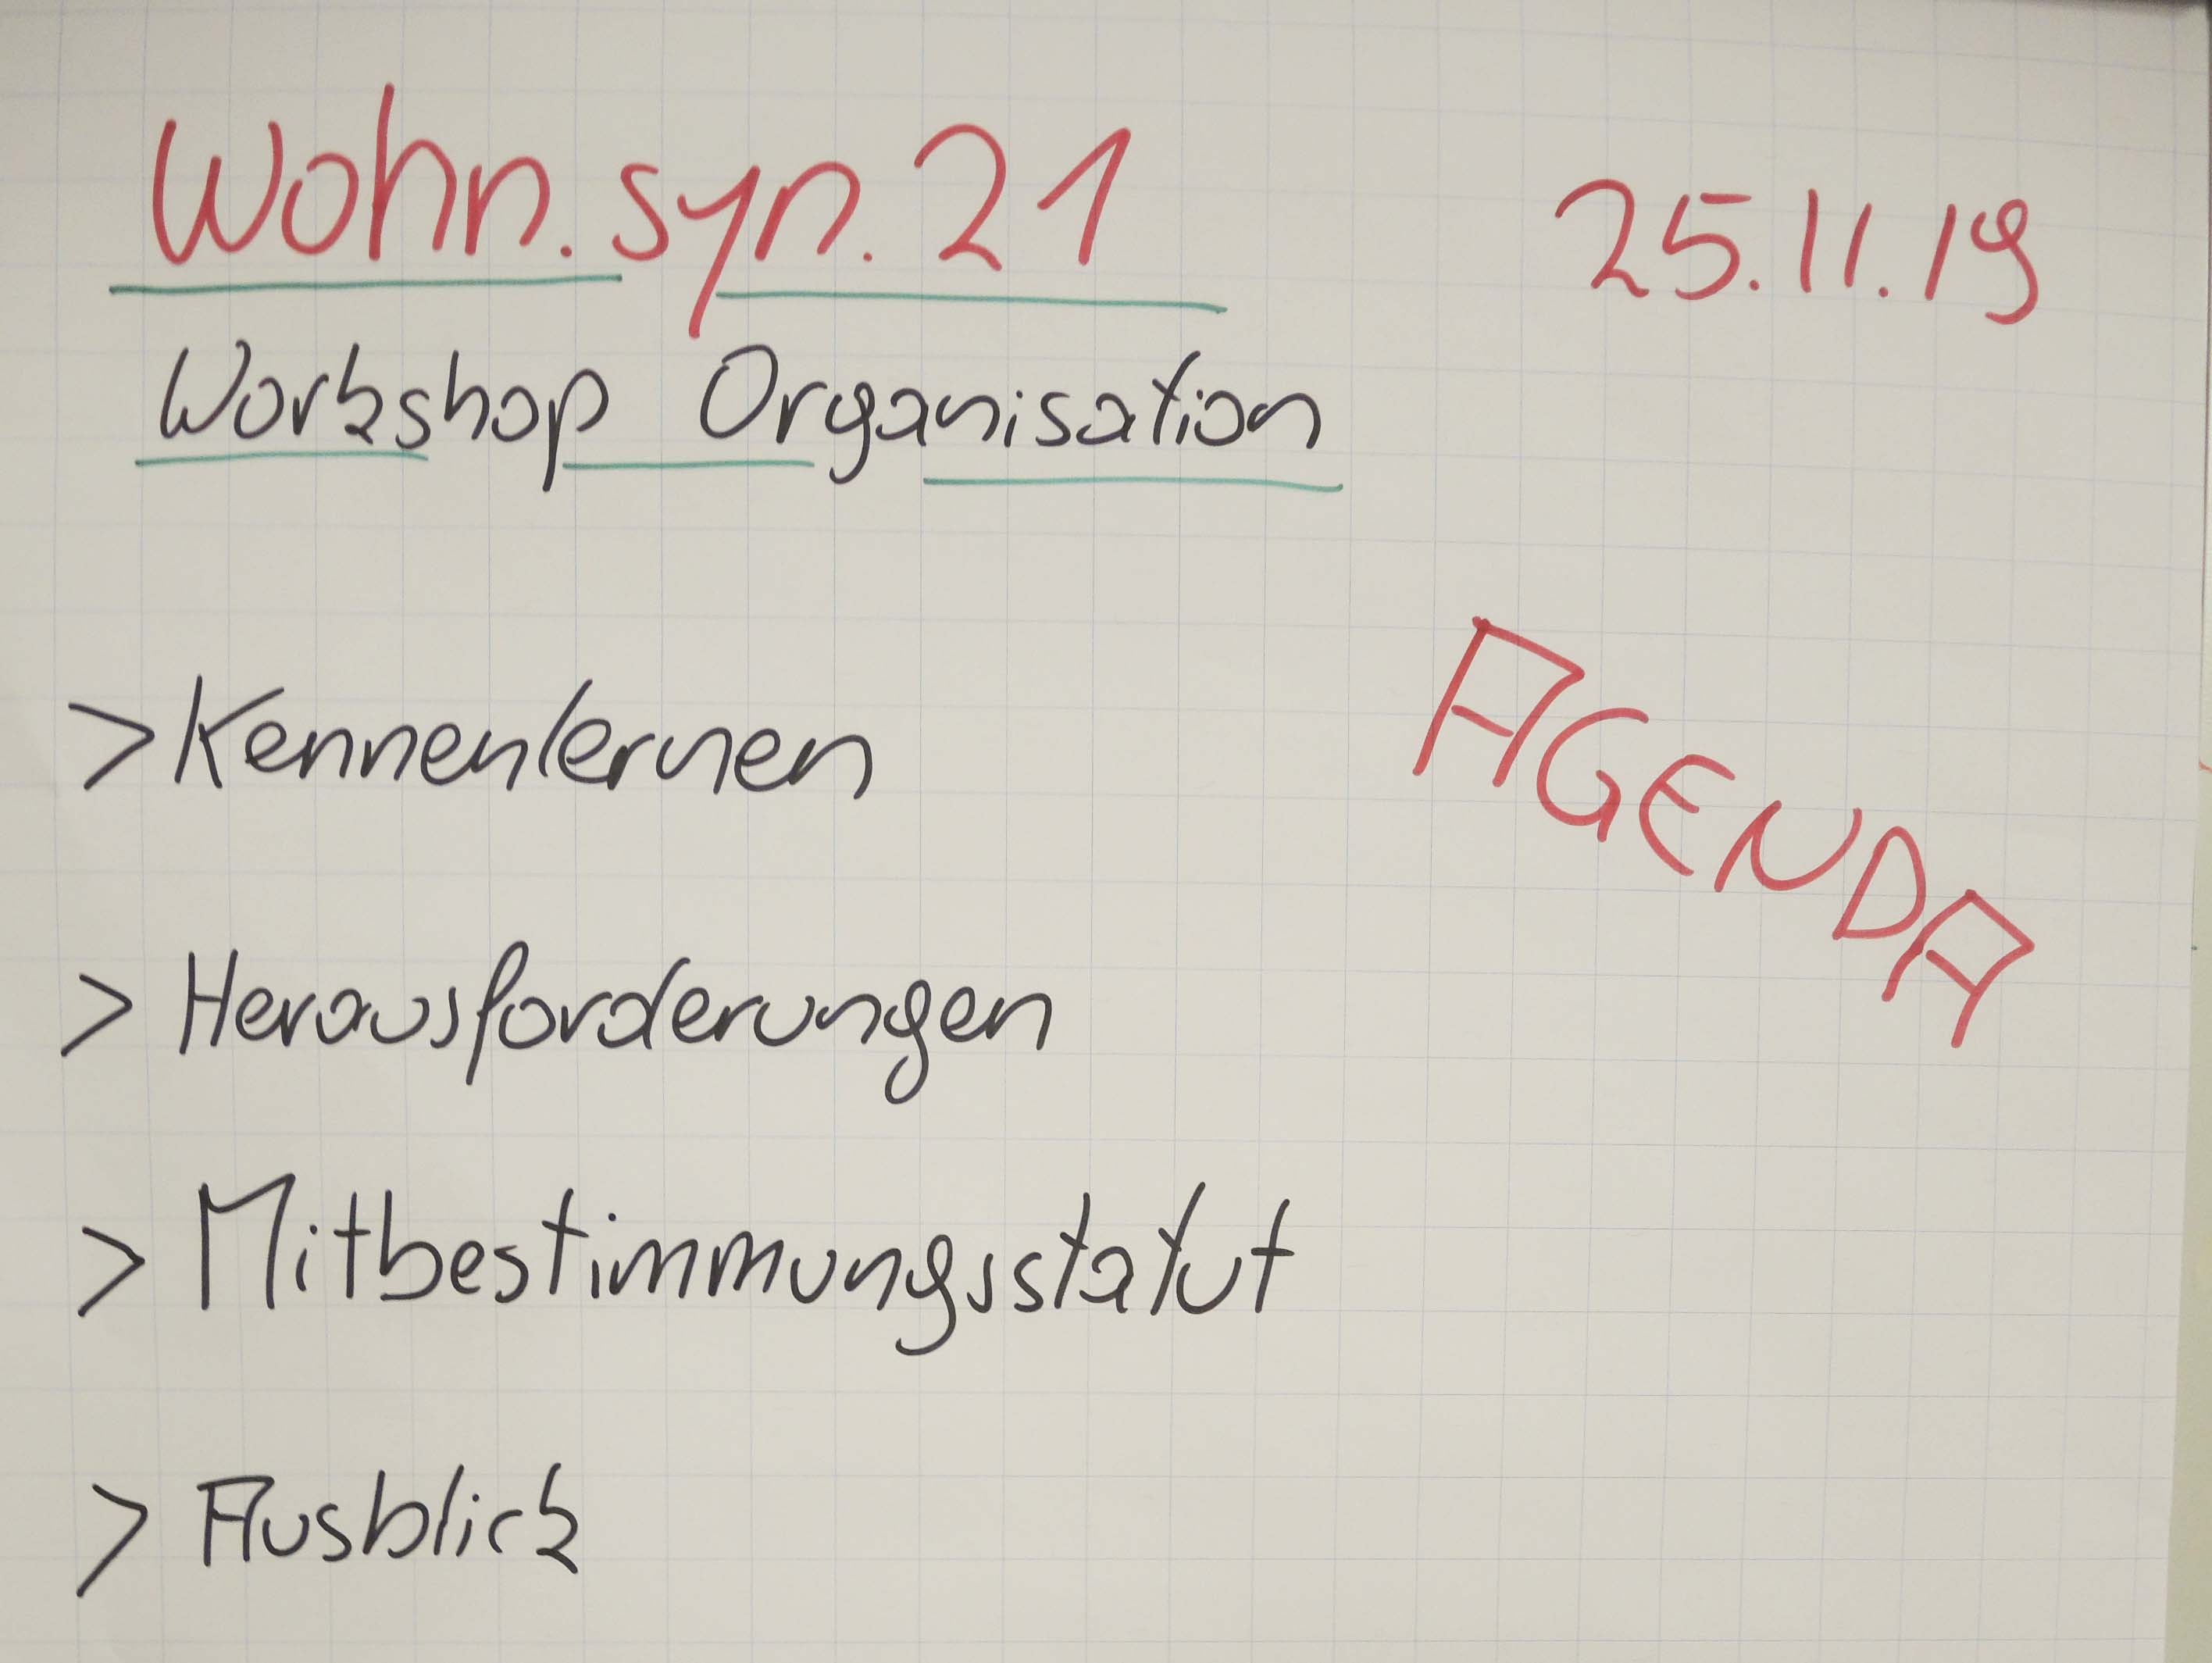 Wohn.syn.21 25.11.19
Workshop Organisation
AGENDA
> Kennenlernen
> Herausforderungen
> Mitbestimmungsstatut
> Ausblick